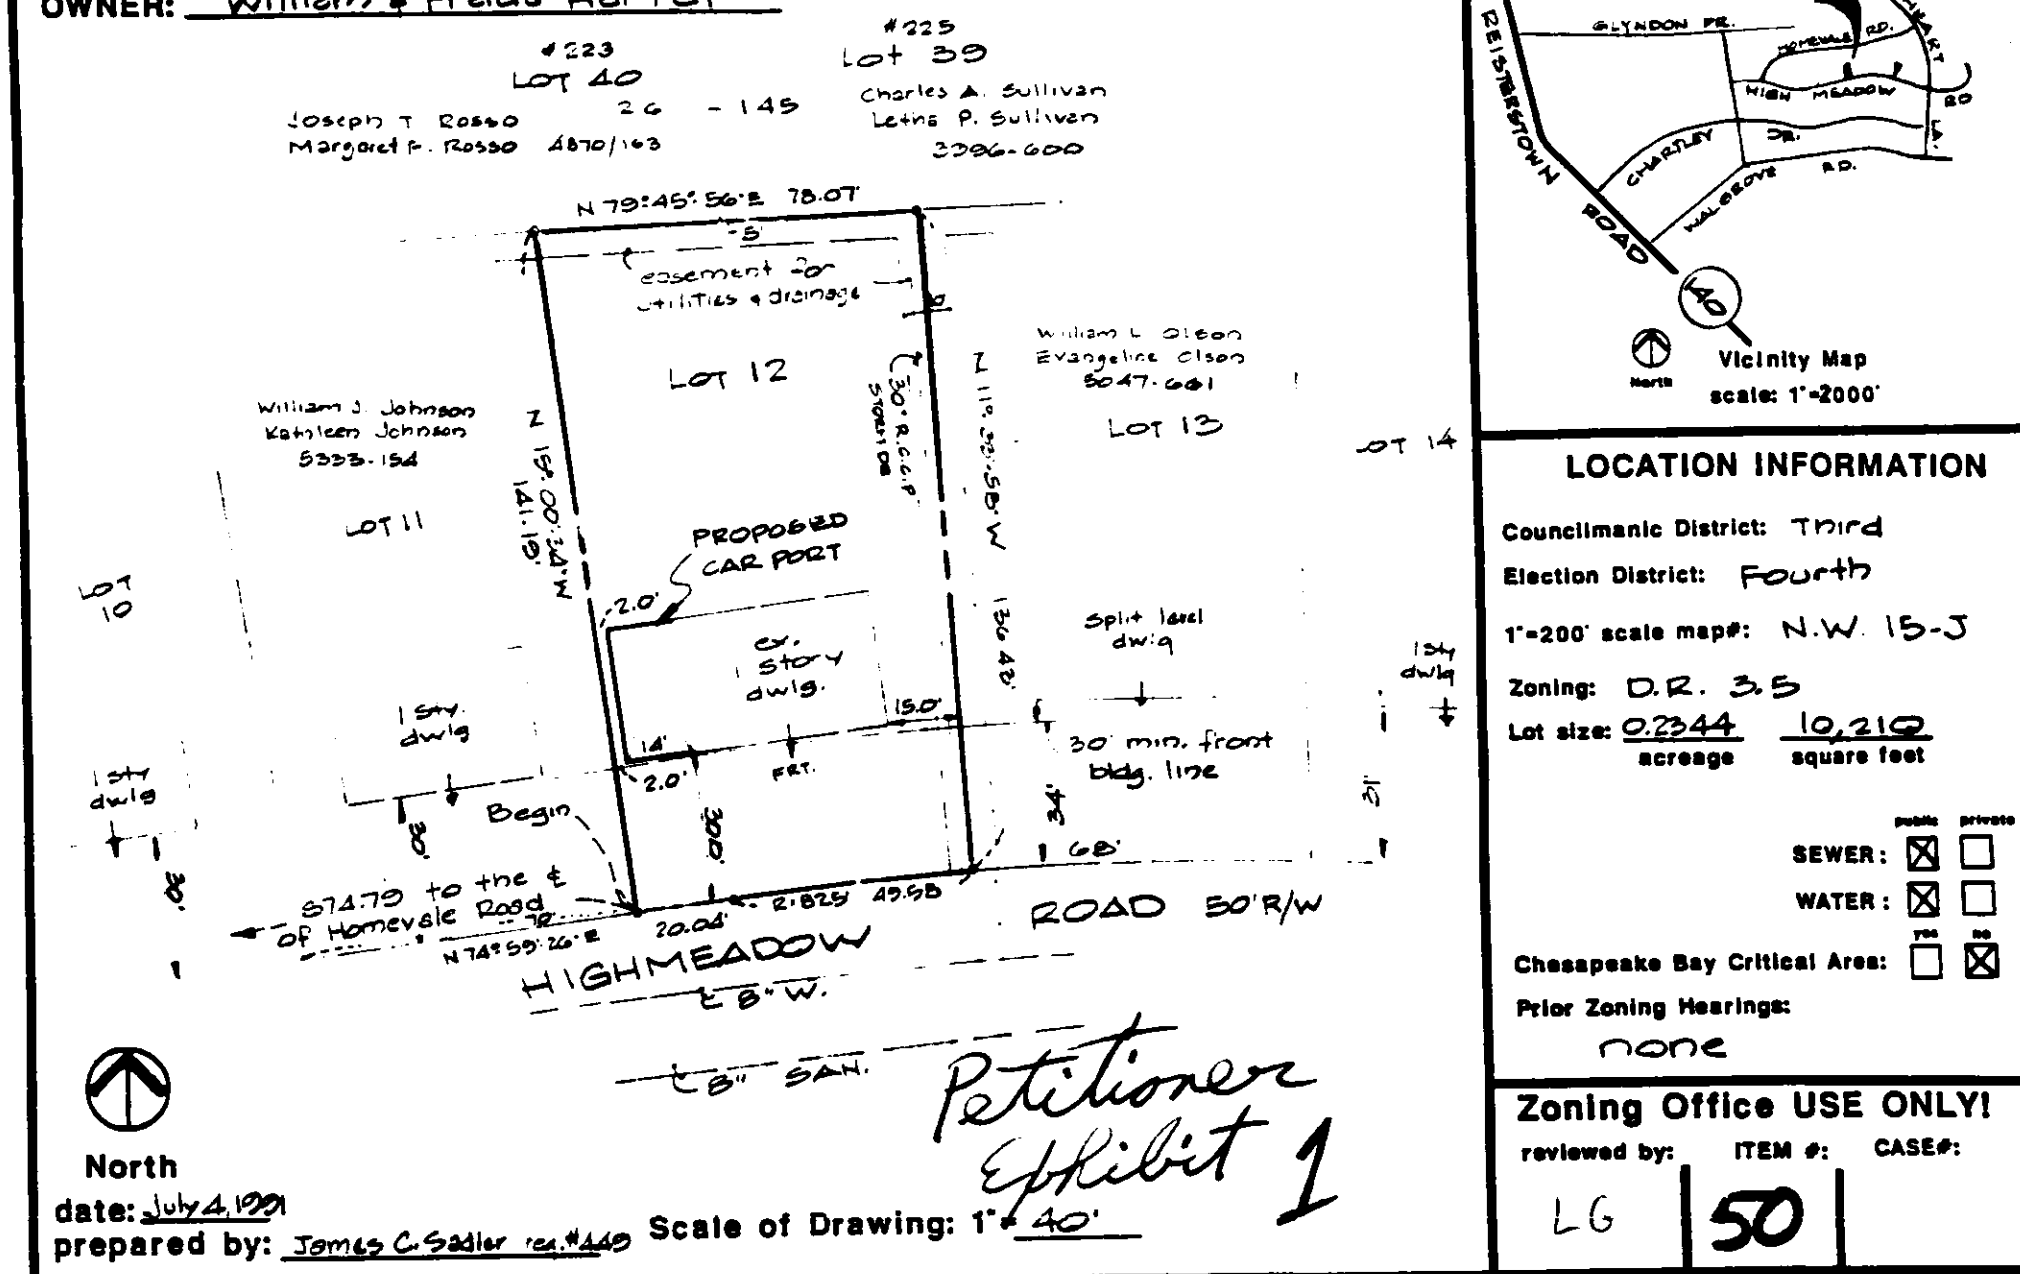 OWNER: William &
#223
LOT 40
Joseph T Rosso
Margaret F. Rosso 4870/163
26 - 145
#225
Lot 39
Charles A. Sullivan
Letha P. Sullivan
3396-600
N 79°45'56"E 78.07'
5'
easement for
utilities & drainage
LOT 12
30" R.C.C.P.
STORM DR
William L Olson
Evangeline Olson
5047-661
LOT 13
LOT 14
William J. Johnson
Kathleen Johnson
5333-154
LOT 11
LOT
10
N 15°00'34"W
141.19'
PROPOSED
CAR PORT
2.0'
ex.
1 story
dwlg.
15.0'
14'
2.0'
FRT.
136.42'
Split level
dwlg
1 sty
dwlg
1 sty.
dwlg
1 sty
dwlg
30' min. front
bldg. line
Begin
30'
30'
30.0'
34'
31'
68'
574.79 to the ℄
of Homevale Road
N 74°59'26"E
20.04'
R=825' 49.58
HIGHMEADOW ROAD 50' R/W
℄ 8" W.
℄ 8" SAN.
Petitioner
Exhibit 1
North
date: July 4, 1991
prepared by: James C. Sadler reg.#449
Scale of Drawing: 1"= 40'
REISTERSTOWN
ROAD
GLYNDON DR.
HOMEVALE RD.
HIGH MEADOW RD
CHARTLEY DR.
WALGROVE RD.
LA.
140
North
Vicinity Map
scale: 1"=2000'
LOCATION INFORMATION
Councilmanic District: Third
Election District: Fourth
1"=200' scale map#: N.W. 15-J
Zoning: D.R. 3.5
Lot size: 0.2344 10,210
acreage square feet
public private
SEWER: ☒ ☐
WATER: ☒ ☐
yes no
Chesapeake Bay Critical Area: ☐ ☒
Prior Zoning Hearings:
none
Zoning Office USE ONLY!
reviewed by: ITEM #: CASE#:
LG 50